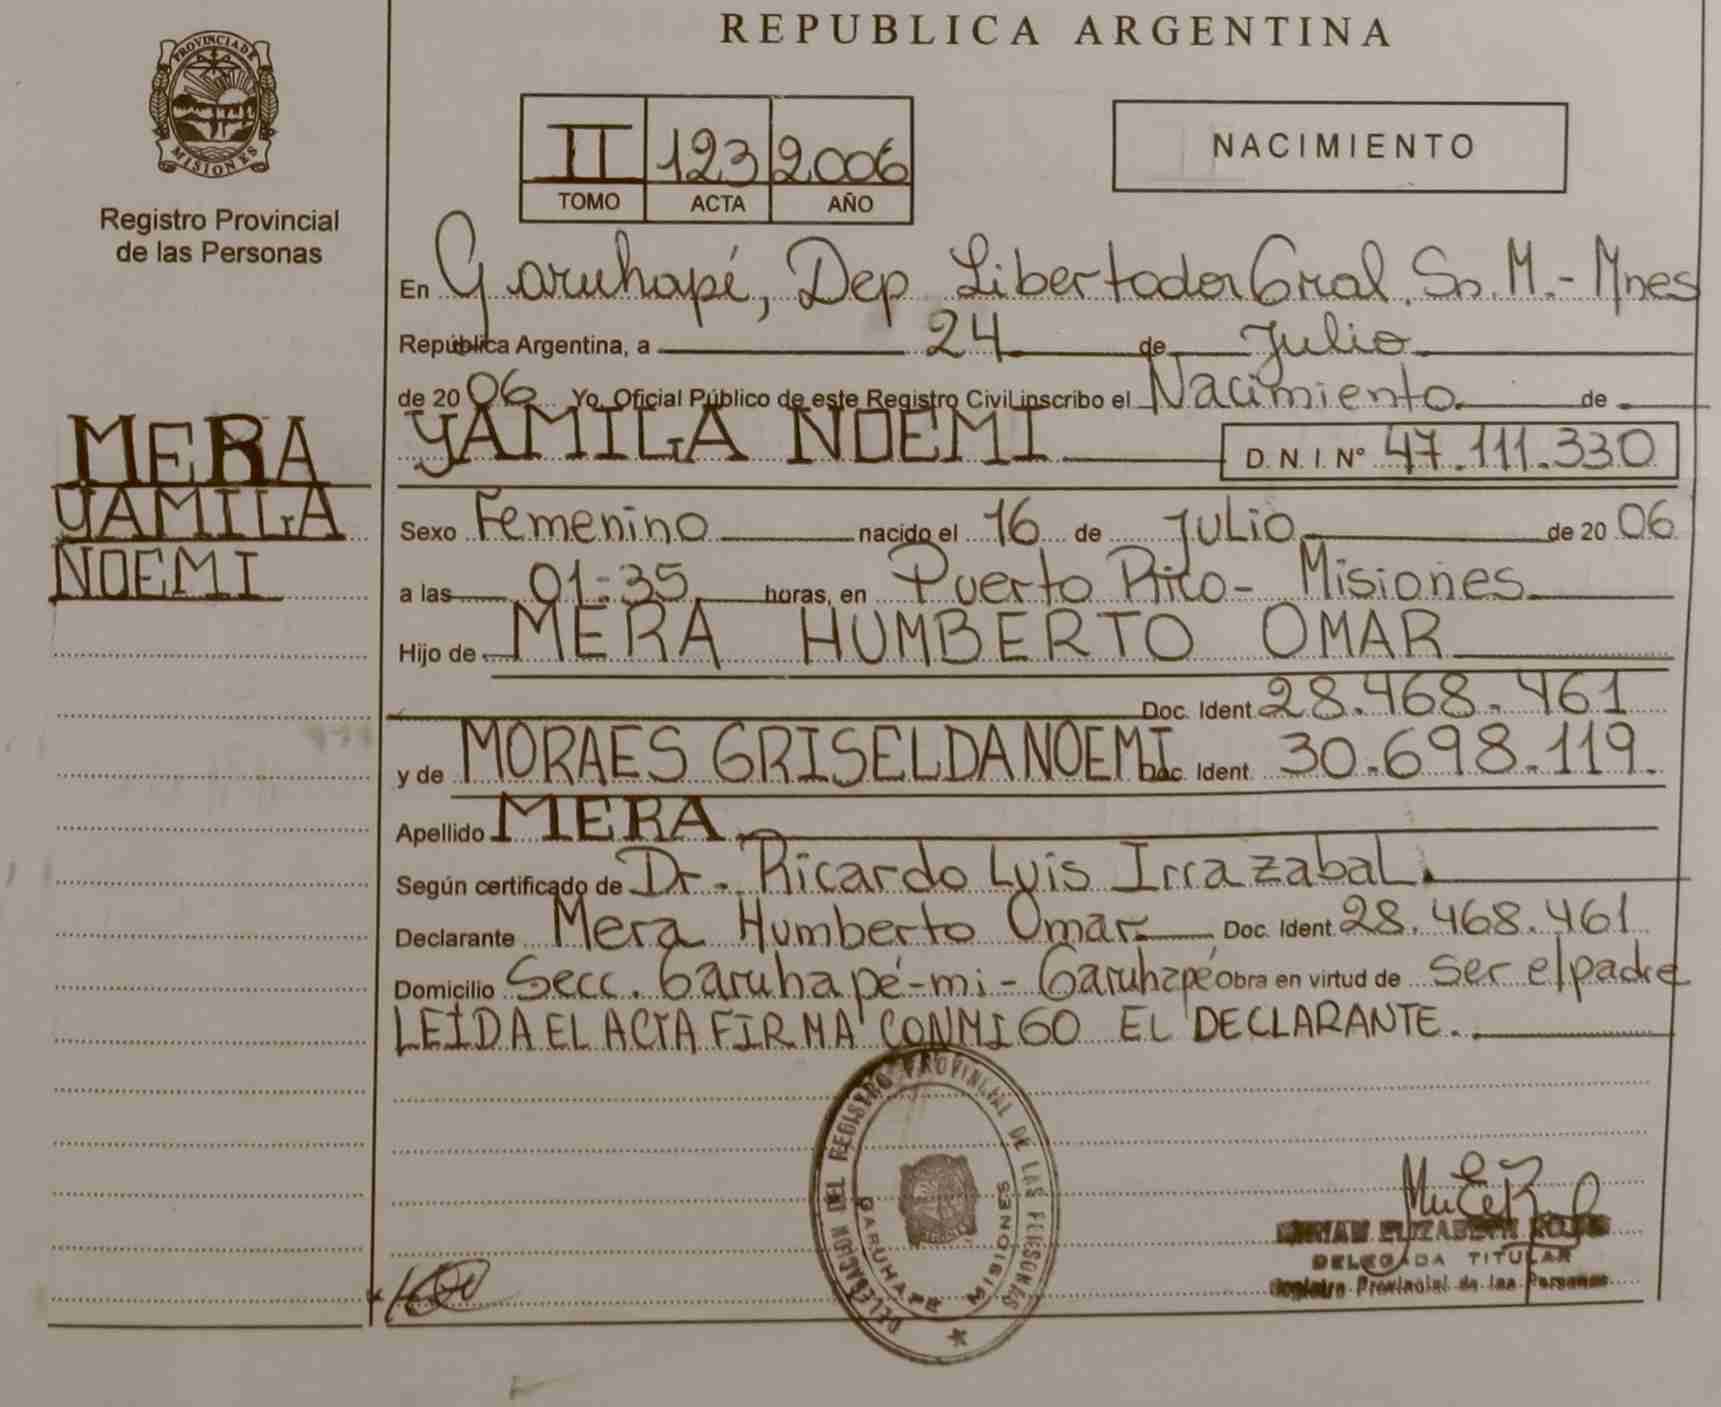 REPUBLICA ARGENTINA
PROVINCIA DE
MISIONES
Registro Provincial
de las Personas
II 123 2006
TOMO ACTA AÑO
NACIMIENTO
En Garuhapé, Dep Libertador Gral. Sn. M.- Mnes
República Argentina, a 24 de Julio
de 2006 Yo, Oficial Público de este Registro Civil inscribo el Nacimiento de
YAMILA NOEMI D. N. I. N° 47.111.330
MERA
YAMILA
NOEMI
Sexo Femenino nacido el 16 de Julio de 2006
a las 01:35 horas, en Puerto Rico- Misiones
Hijo de MERA HUMBERTO OMAR
Doc. Ident. 28.468.461
y de MORAES GRISELDA NOEMI Doc. Ident. 30.698.119.
Apellido MERA
Según certificado de Dr. Ricardo Luis Irrazabal.
Declarante Mera Humberto Omar Doc. Ident. 28.468.461
Domicilio Secc. Garuhapé-mi- Garuhapé Obra en virtud de ser el padre
LEIDA EL ACTA FIRMA CONMIGO EL DECLARANTE.
DELEGACION DEL REGISTRO PROVINCIAL DE LAS PERSONAS
GARUHAPE MISIONES
MIRIAM ELIZABETH ROJAS
DELEGADA TITULAR
Registro Provincial de las Personas